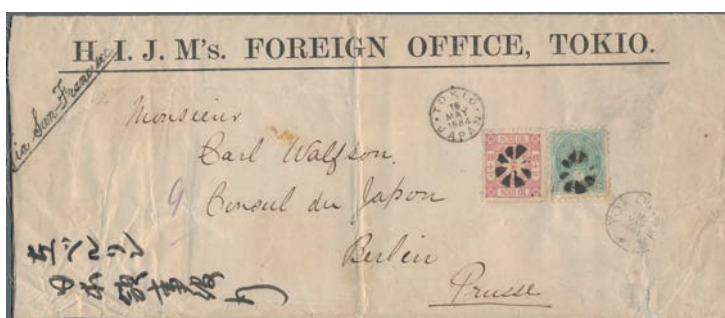 H. I. J. M's. FOREIGN OFFICE, TOKIO.
via San Francisco
TOKIO
18
MAY
1884
JAPAN
Monsieur
Carl Walfson.
9 Consul du Japon
Berlin
Prusse
在ベルリン
日本領事館